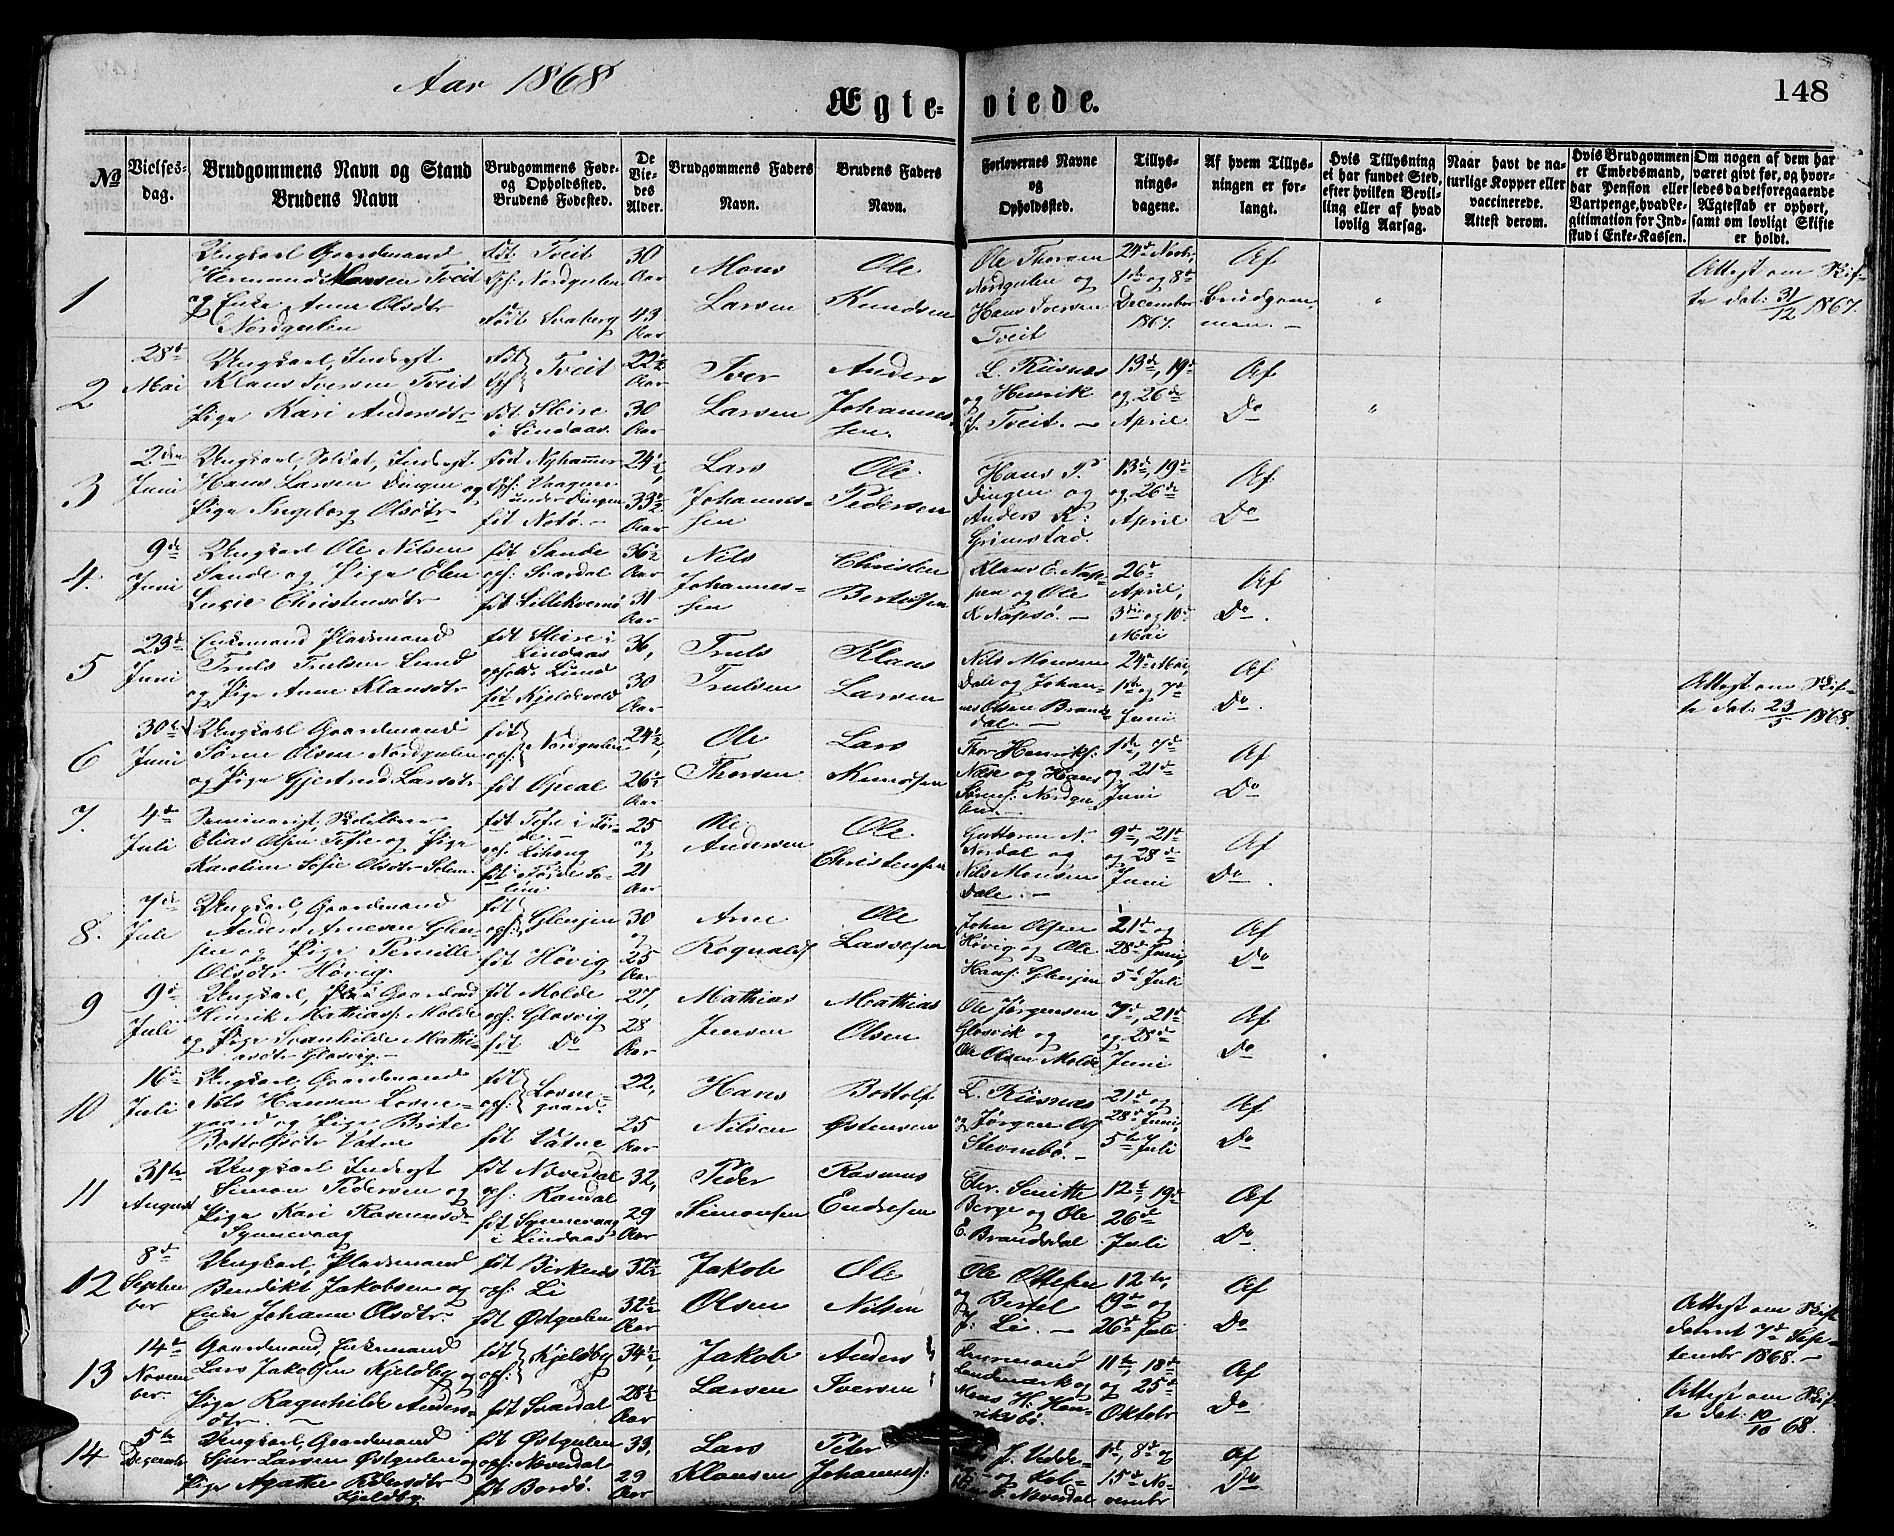 Aar 1868
148
Ægte-viede.
No
Vielses-dag.
Brudgommens Navn og Stand
Brudens Navn
Brudgommens Føde-
og Opholdssted.
Brudens Fødested.
De
Vie-
des
Alder.
Brudgommens Faders
Navn.
Brudens Faders
Navn.
Forlovernes Navne
og
Opholdssted.
Tillys-
nings-
dagene.
Af hvem Tillys-
ningen er for-
langt.
Hvis Tillysning
ei har fundet Sted,
efter hvilken Bevil-
ling eller af hvad
lovlig Aarsag.
Naar havt de na-
turlige Kopper eller
vaccinerede.
Attest derom.
Hvis Brudgommen
er Embedsmand,
har Pension eller
Vartpenge, hvad Le-
gitimation for Ind-
skud i Enke-Kassen.
Om nogen af dem har
været givt før, og hvor-
ledes da det foregaaende
Ægteskab er ophørt,
samt om lovligt Skifte
er holdt.
1
Ungkarl Gaardmand
Monsen Tveit
og Enke Anne Olsdtr
Nordgulen
født Tveit
Oph: Nordgulen
født Svaberg
30
Aar
43
Aar
Mons
Larsen
Ole
Knudsen
Ole Thorsen
Nordgulen og
Hans Iversen
Tveit
24de Novbr,
1ste og 8de
December
1867.
Af
Brudgom-
men. —
Attest om Skif-
te dat: 31/12 1867.
2
28de
Mai
Ungkarl, Inderst
Klaus Iversen Tveit
Pige Kari Andersdtr
født
Oph: Tveit
født Sleire
i Lindaas
22½
Aar
30
Aar
Iver
Larsen
Anders
Johannes-
sen.
L. Risnes
og Henrik
J. Tveit. —
13de, 19de
og 26de
April
Af
Do
3
2den
Juni
Ungkarl, Soldat, Inderst
Hans Larsen Dingen og
Pige Ingeborg Olsdtr
født Nyhammer
Oph: Vaagene
under Dingen
født Notø. —
24½,
33½
Aar
Lars
Johannes-
sen
Ole
Pedersen
Hans P.
Dingen og
Anders K:
Grimstad.
13de, 19de
og 26de
April
Af
Do
4.
9de
Juni
Ungkarl Ole Nilsen
Sande og Pige Elen
Lucie Christensdtr
født Sande
oph: Svardal
født Lillekvernø
36½
Aar
31
Aar
Nils
Johannes-
sen
Christen
Bertelsen
Klaus E. Nap-
pen og Ole
K Napsø. —
26de
April,
3die og 10de
Mai
Af
Do.
5
23de
Juni
Enkemand Pladsmand
Truls Trulsen Lund
og Pige Anne Klausdtr
født Sleire i
Lindaas
opholds Lund
født Kjeldevold
36,
30
Aar
Truls
Trulsen
Klaus
Larsen
Nils Monsen
Dale og Johan-
nes Olsen Brands-
dal. —
24de Mai,
1ste og 7de
Juni
Af
Do.
Attest om Skif-
te dat: 23/5 1868.
6
30te
Juni
Ungkarl Gaardmand
Søren Olsen Nordgulen
og Pige Gjertrud Larsdtr
født
oph: Nordgulen
født Opedal
24½,
26½
Aar
Ole
Thorsen
Lars
Knudsen
Thor Henriks:
Næse og Hans
Sørens: Nordgu-
len
1ste, 7de
og 21de
Juni
Af
Do
7.
4de
Juli
Seminarist, Skolelærer
Elias Olsen Tefre og Pige
Karoline Sofie Olsdtr Solem
født Tefre i Før-
de. —
født i Førde So-
lem.
25
og
21
Aar
Ole
Andersen
Ole
Christensen
Guttorm N.
Nordal og
Nils Monsen
Dale. —
9de, 21de
og 28de
Juni
Af
Do.
8.
7de
Juli
Ungkarl, Gaardmand
Anders Arnesen Glen-
jen og Pige Pernille
Olsdtr Høvig.
født
oph: Glenjen
født Høvig
30
og
25
Aar
Arne
Rognalds:
Ole
Lassesen
John Olsen
Høvig og Ole
Hans: Glenjen
21de og
28de Juni,
5te Juli
Af
Do
9
9de
Juli
Ungkarl, Gaardmd
Henrik Mathias: Molde
og Pige Svanhilde Mathi-
asdtr Glosvig. —
født Molde
oph: Glosvig
født Do
27,
28
Aar
Mathias
Jensen
Mathias
Olsen
Ole Jørgensen
Glosvik og
Ole Olsen Molde
7de, 21de
og 28de
Juni
Af
Do
10
16de
Juli
Ungkarl, Gaardmand
Nils Hansen Losne-
gaard og Pige Brite
Bottolfsdtr Vatne
født
oph: Losne-
gaard.
født Vatne
22,
25
Aar
Hans
Nilsen
Bottolf
Østensen
L. Risnes
og Jørgen O
Steensbø. —
21de og
28de Juni,
5te Juli
Af
Do
11
31te
August
Ungkarl Inderst
Simon Pedersen og
Pige Kari Rasmusd:
Synnevaag
født Noverdal
oph: Randal
født Synnevaag
i Lindaas
32,
29
Aar
Peder
Simonsen
Rasmus
Endresen
Chr. Smitte
Berge og Ole
E. Brandsdal
12te, 19de
26de
Juli
Af
Do
12
8de
Septem-
ber
Ungkarl, Pladsmand
Bendikt Jakobsen og
Enke Johanne Olsdtr.
født Birkenes
oph: Li
født Østgulen
32½
32½
Aar
Jakob
Olsen
Ole
Nilsen
Ole Ottesen
og Bertel
J: Li. —
12te,
19de og
26de Juli
Af
Do
Attest om Skif-
dateret 7de Sep-
tember 1868. —
13
14de
Novem-
ber.
Gaardmand, Enkemand
Lars Jakobsen Kjeldby og
Pige Ragnhilde Anders-
dtr. —
født
oph: Kjeldby
født Svardal
34½,
28½
Aar
Jakob
Larsen
Anders
Iversen
Lensmand
Landmark og
Mons H. Hen-
riksbø.
11te, 18de
og 25de
Oktobr
Af
Do
Attest om Skif-
te dat: 10/10 68.
14
5te
Decembr
Ungkarl, Gaardmand
Sjur Larsen Østgulen og
Pige Agathe Pedersdtr
Kjeldby.
født Østgulen
oph: Noverdal
født Bordø.
33,
29
Aar
Lars
Klausen
Peter
Johannes:
J. Vedde-
og Kol-
Noverdal
1ste, 8de og
15de No-
vembr
Af
Do